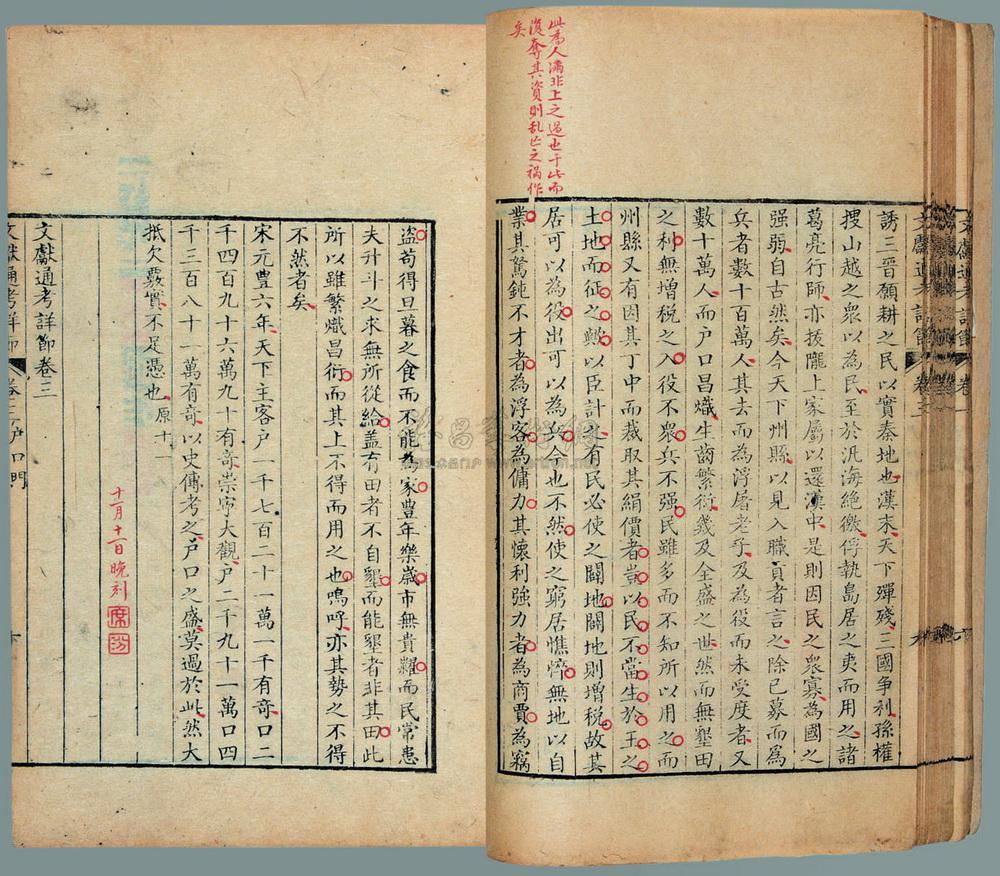 此為人滿非上之過也于此而
復奪其資則乱亡之禍作
矣
誘三晉願耕之民以實秦地也漢末天下殫殘三國争利孫權
搜山越之衆以為民至於汎海絕徼俘執島居之夷而用之諸
葛亮行師亦拔隴上家屬以還漢中是則因民之衆寡為國之
强弱自古然矣今天下州縣以見入職貢者言之除已募而為
兵者數十百萬人其去而為浮屠老乎及為役而未受度者又
數十萬人而户口昌熾生齒繁衍幾及全盛之世然而無墾田
之利無增税之入役不衆兵不强民雖多而不知所以用之而
州縣又有因其丁中而裁取其絹價者豈以民不當生於王之
土地而征之歟以臣計之有民必使之闢地闢地則增税故其
居可以為役出可以為兵今也不然使之窮居憔悴無地以自
業其駑鈍不才者為浮客為傭力其懷利強力者為商賈為竊
盗苟得旦暮之食而不能為家豊年樂歲市無貴糶而民常患
夫升斗之求無所從給盖有田者不自墾而能墾者非其田此
所以雖繁熾昌衍而其上不得而用之也嗚呼亦其勢之不得
不然者矣
宋元豊六年天下主客户一千七百二十一萬一千有奇口二
千四百九十六萬九十有奇崇寧大觀户二千九十一萬口四
千三百八十一萬有奇以史傳考之户口之盛莫過於此然大
抵欠覈實不足憑也原十一
十一月十一日晚刻
文獻通考詳節卷三
文獻通考詳節 卷三户口門